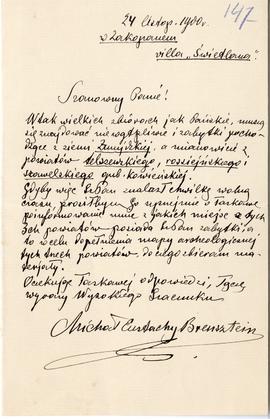 147
24 listop. 1900 r.
w Zakopanem
villa „Świetlana”.
Szanowny Panie!
W tak wielkich zbiorach jak Pańskie, muszą
się znajdować niewątpliwie i zabytki pocho-
dzące z ziemi Żmujdzkiej, a mianowicie z
powiatów telszewskiego, rossieńskiego i
szawelskiego gub. kowieńskiej.
Gdyby więc WPan znalazł chwilkę wolną
czasu, prosiłbym Go uprzejmie o łaskawe
poinformowanie mnie z jakich miejsc z tych
3ch powiatów posiada WPan zabytki, a
to w celu dopełnienia mapy archeologicznej
tych trzech powiatów, do czego zbieram ma-
teryały.
Oczekując łaskawej odpowiedzi, łączę
wyrazy Wysokiego Szacunku
Michał Eustachy Brensztein